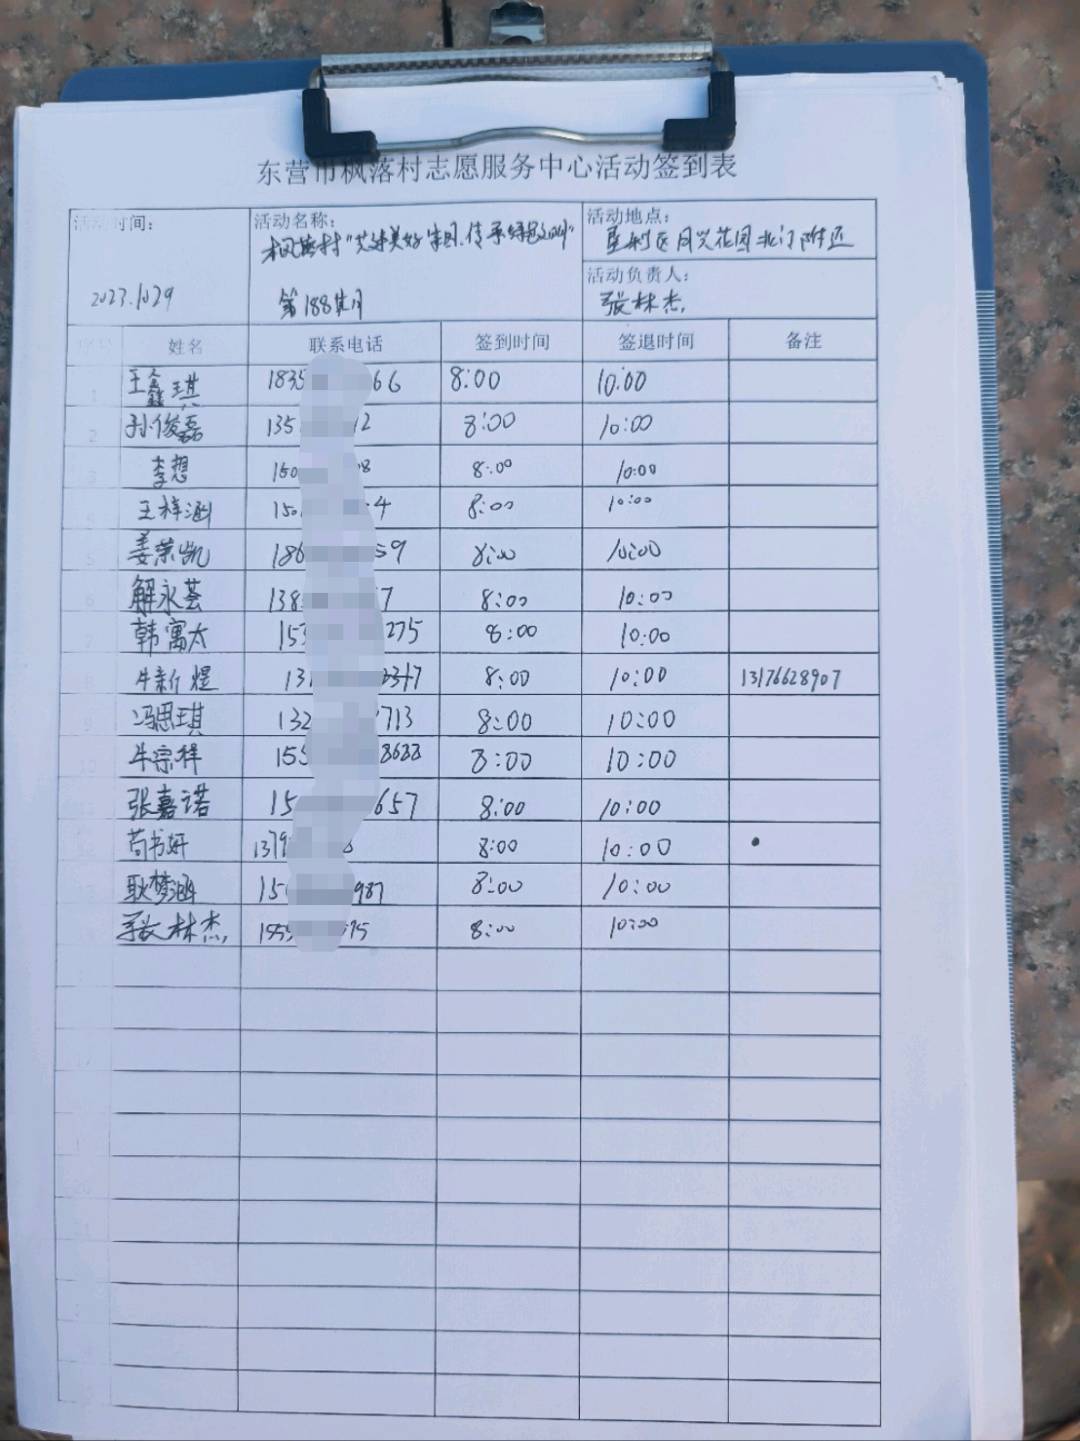 东营市枫落村志愿服务中心活动签到表
活动时间: 活动名称: 活动地点:
枫落村"共建美好家园、传承绿色文明" 垦利区同兴花园北门附近
活动负责人:
2023.10.29 第188集月 张林杰
姓名 联系电话 签到时间 签退时间 备注
1 王鑫琪 1835 66 8:00 10:00
2 孙俊磊 135 12 8:00 10:00
3 李想 150 08 8:00 10:00
4 王梓涵 150 4 8:00 10:00
5 姜荣凯 186 59 8:00 10:00
6 解永荟 138 7 8:00 10:00
7 韩寓太 153 275 8:00 10:00
8 牛新煜 131 2317 8:00 10:00 13176628907
9 冯思琪 132 713 8:00 10:00
10 牛宗祥 155 8688 8:00 10:00
张嘉诺 15 657 8:00 10:00
苟书妍 1379 8:00 10:00
耿梦涵 15 987 8:00 10:00
张林杰 155 75 8:00 10:00